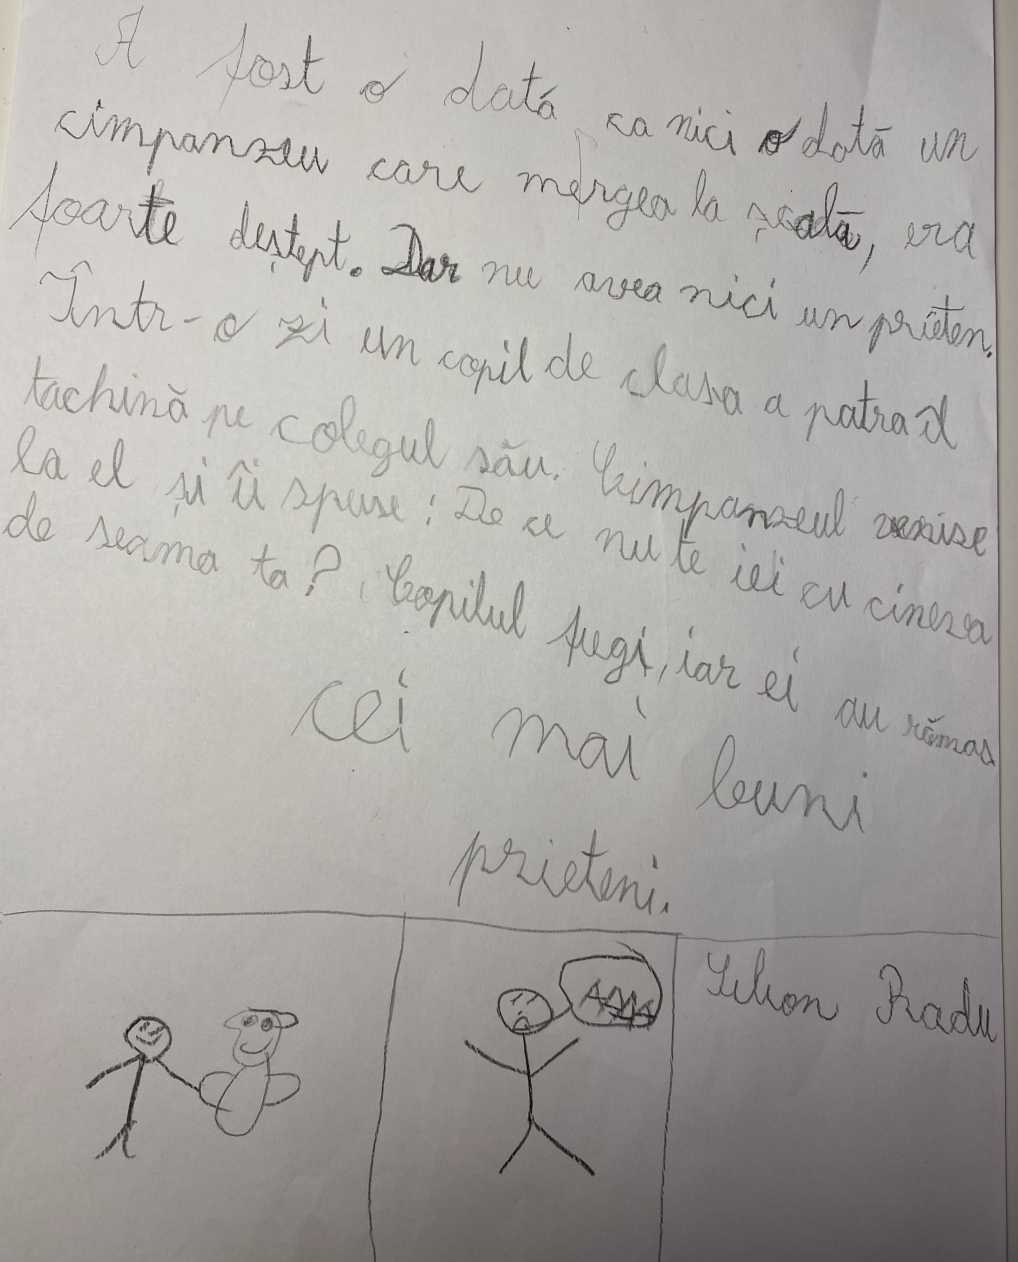 A fost o dată ca nici odată un
cimpanzeu care mergea la școală, era
foarte deștept. Dar nu avea nici un prieten.
Într-o zi un copil de clasa a patra îl
tachină pe colegul său. Cimpanzeul venise
la el și îi spuse: De ce nu te iei cu cineva
de seama ta? Copilul fugi, iar ei au rămas
cei mai buni
prieteni.
Radu